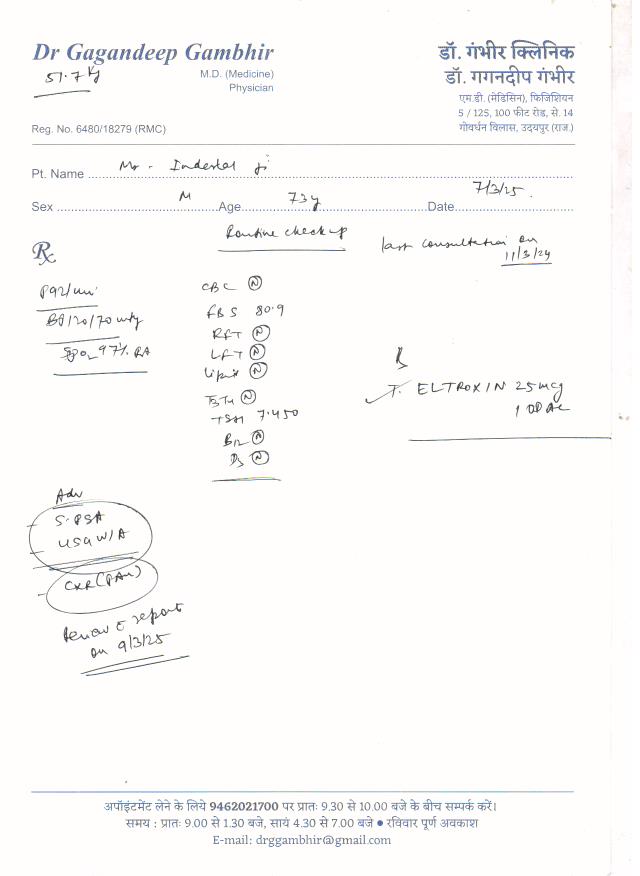 Dr Gagandeep Gambhir
51.7 kg
M.D. (Medicine)
Physician
Reg. No. 6480/18279 (RMC)
डॉ. गंभीर क्लिनिक
डॉ. गगनदीप गंभीर
एम.डी. (मेडिसिन), फिजिशियन
5 / 125, 100 फीट रोड, से. 14
गोवर्धन विलास, उदयपुर (राज.)
Pt. Name Mr. ji
Sex M Age 73y Date 7/3/25
Routine checkup
last consultation on
11/3/24
Rx
P 92/min
BP 120/70 mmHg
SPO2 97% RA
CBC (N)
FBS 80.9
RFT (N)
LFT (N)
Lipid (N)
T3T4 (N)
TSH 7.450
B12 (N)
D3 (N)
R
T. ELTROXIN 25mcg
1 OD AC
Adv
- S. PSA
- USG W/A
- CXR (PA)
Review c report
on 9/3/25
अपॉइंटमेंट लेने के लिये 9462021700 पर प्रातः 9.30 से 10.00 बजे के बीच सम्पर्क करें।
समय : प्रातः 9.00 से 1.30 बजे, सायं 4.30 से 7.00 बजे ● रविवार पूर्ण अवकाश
E-mail: drggambhir@gmail.com